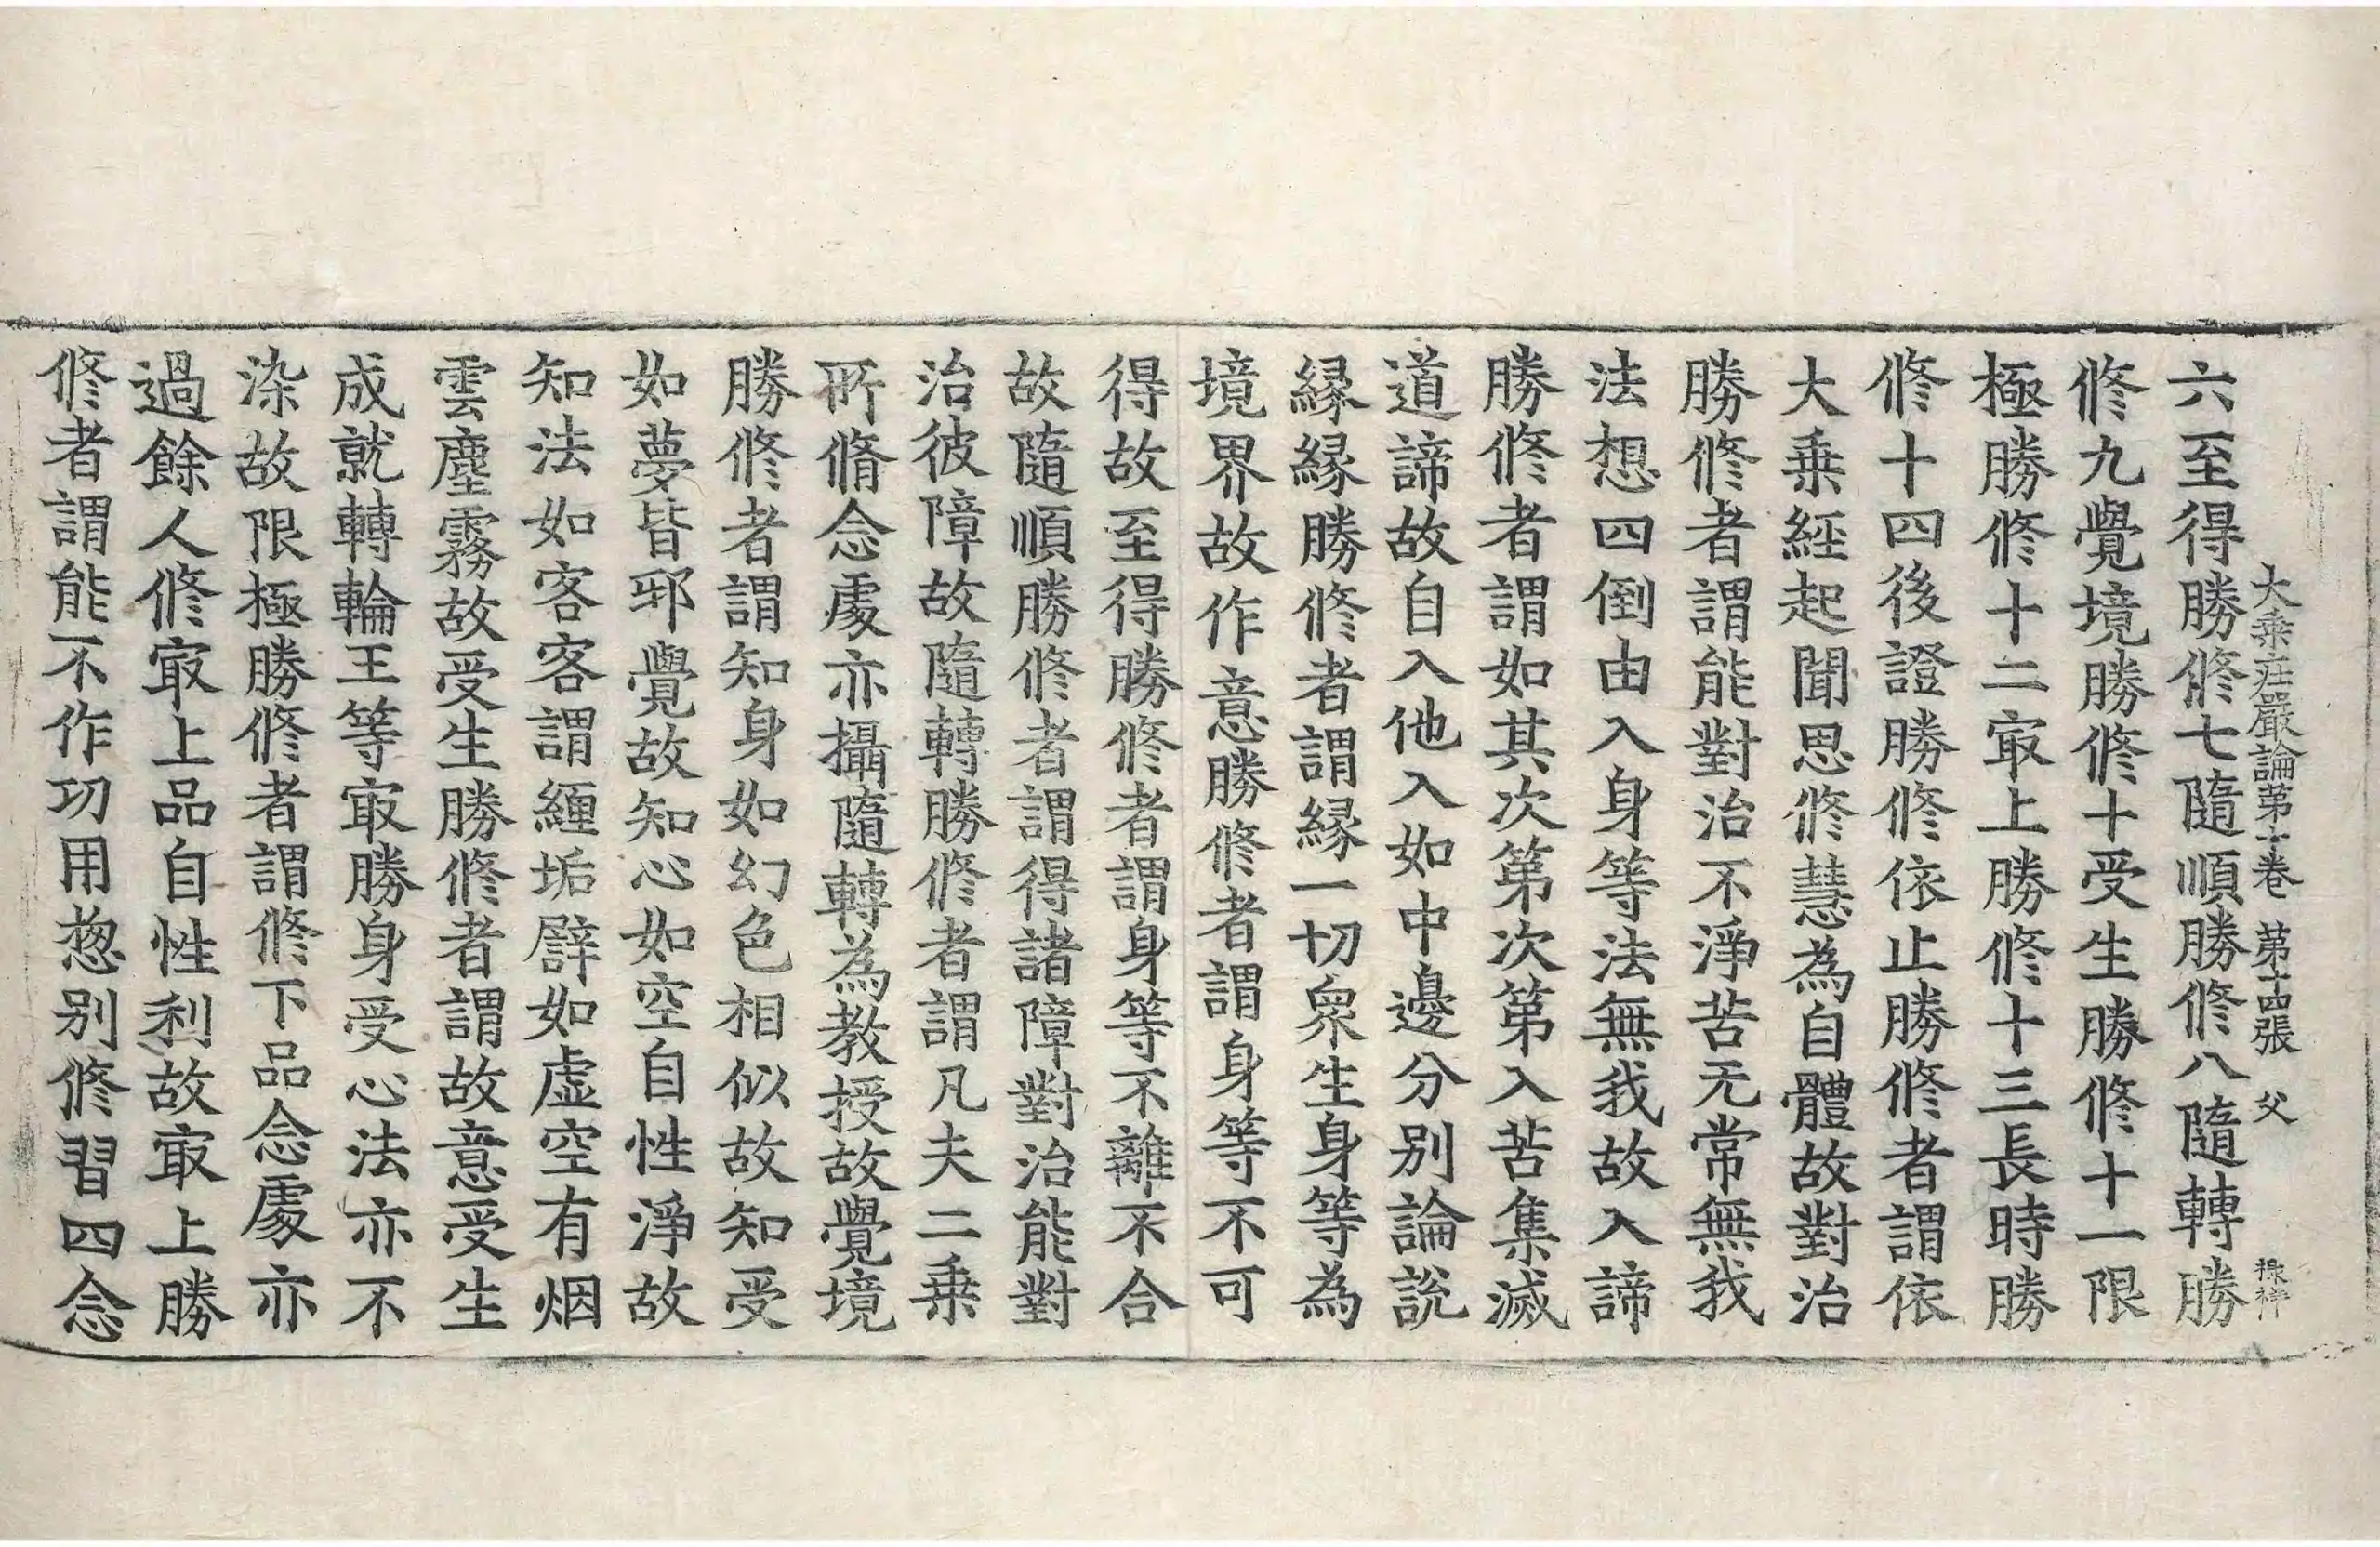 大乗庄嚴論第十卷　第十四張　父　禄祥
六至得勝修七隨順勝修八隨轉勝
修九覺境勝修十受生勝修十一限
極勝修十二㝡上勝修十三長時勝
修十四後證勝修依止勝修者謂依
大乗經起聞思修慧為自體故對治
勝修者謂能對治不淨苦无常無我
法想四倒由入身等法無我故入諦
勝修者謂如其次第次第入苦集滅
道諦故自入他入如中邊分别論說
縁縁勝修者謂縁一切衆生身等為
境界故作意勝修者謂身等不可
得故至得勝修者謂身等不離不合
故隨順勝修者謂得諸障對治能對
治彼障故隨轉勝修者謂凡夫二乗
所脩念處亦攝隨轉為教授故覺境
勝修者謂知身如幻色相似故知受
如夢皆邪覺故知心如空自性淨故
知法如客客謂纒垢譬如虚空有烟
雲塵霧故受生勝修者謂故意受生
成就轉輪王等㝡勝身受心法亦不
染故限極勝修者謂修下品念處亦
過餘人修㝡上品自性利故㝡上勝
修者謂能不作功用惣别修習四念